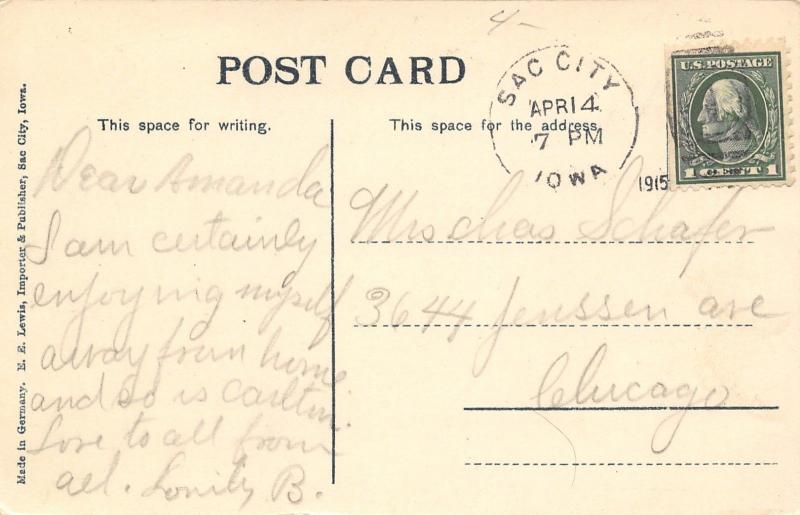 4-
POST CARD
SAC CITY
APR 14
7 PM
IOWA
1915
U.S. POSTAGE
1 CENT 1
This space for writing.
This space for the address.
Dear Amanda
I am certainly
enjoying myself
away from home
and so is
Love to all from
all. B.
Mrs Chas Schafer
3644 Janssen ave
Chicago
Made in Germany. E. E. Lewis, Importer & Publisher, Sac City, Iowa.